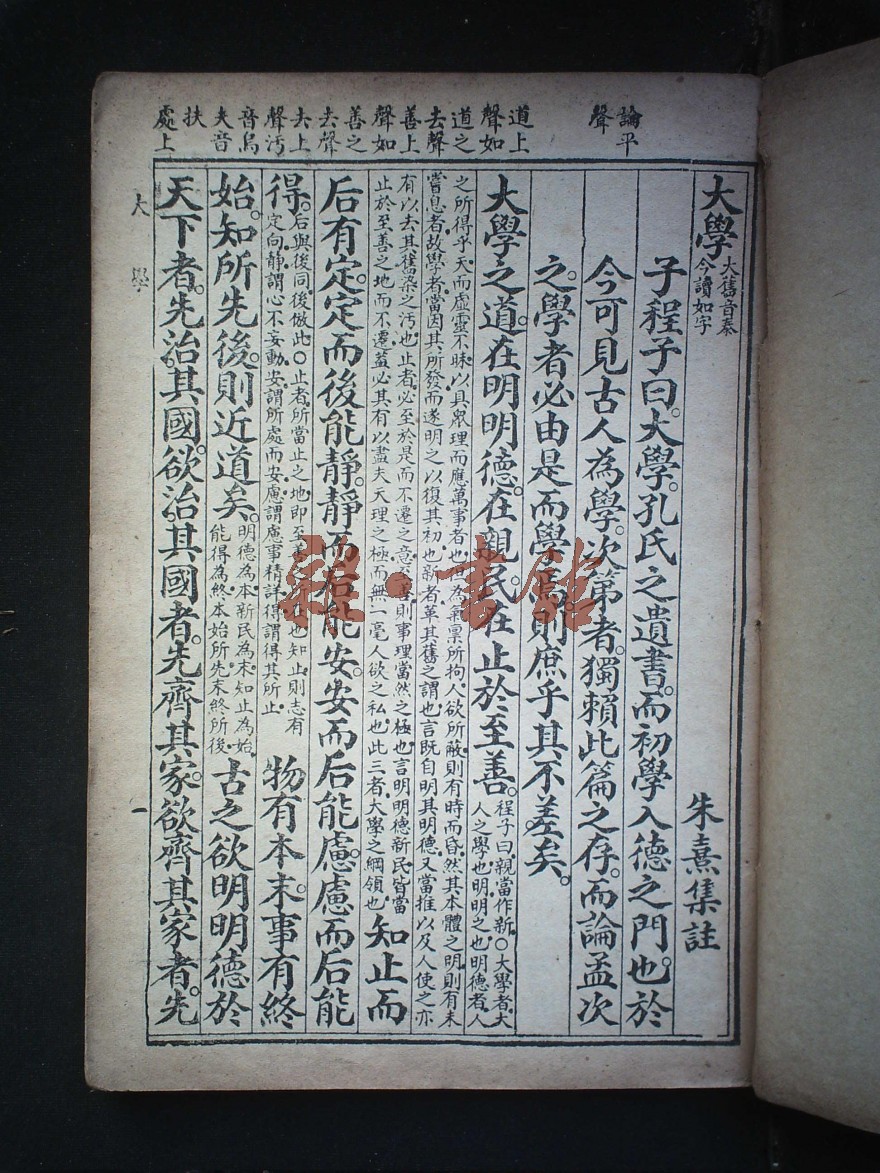 論平
聲
道上
聲如
道之
去聲
善上
聲如
善之
去聲
夫上
聲汚
音烏
夫音
扶
處上
大學
大舊音泰
今讀如字
朱熹集註
子程子曰。大學。孔氏之遺書。而初學入德之門也。於
今可見古人為學。次第者。獨賴此篇之存。而論孟次
之。學者必由是而學焉。則庶乎其不差矣。
大學之道。在明明德。在親民。在止於至善。
程子曰。親當作新。○大學者。大
人之學也。明。明之也。明德者。人
之所得乎天。而虛靈不昧。以具眾理而應萬事者也。但為氣稟所拘。人欲所蔽。則有時而昏。然其本體之明。則有未
嘗息者。故學者當因其所發而遂明之。以復其初也。新者。革其舊之謂也。言既自明其明德。又當推以及人。使之亦
有以去其舊染之汚也。止者。必至於是而不遷之意。至善。則事理當然之極也。言明明德新民。皆當
止於至善之地而不遷。蓋必其有以盡夫天理之極。而無一毫人欲之私也。此三者。大學之綱領也
知止而
后有定。定而後能靜。靜而后能安。安而后能慮。慮而后能
得。
后與後同。後倣此。○止者。所當止之地。即至善之所在也。知止則志有
定向。靜謂心不妄動。安謂所處而安。慮謂慮事精詳。得謂得其所止
物有本末。事有終
始。知所先後。則近道矣。
明德為本。新民為末。知止為始。
能得為終。本始所先。末終所後。
古之欲明明德於
天下者。先治其國。欲治其國者。先齊其家。欲齊其家者。先
大學
一
雜·書館